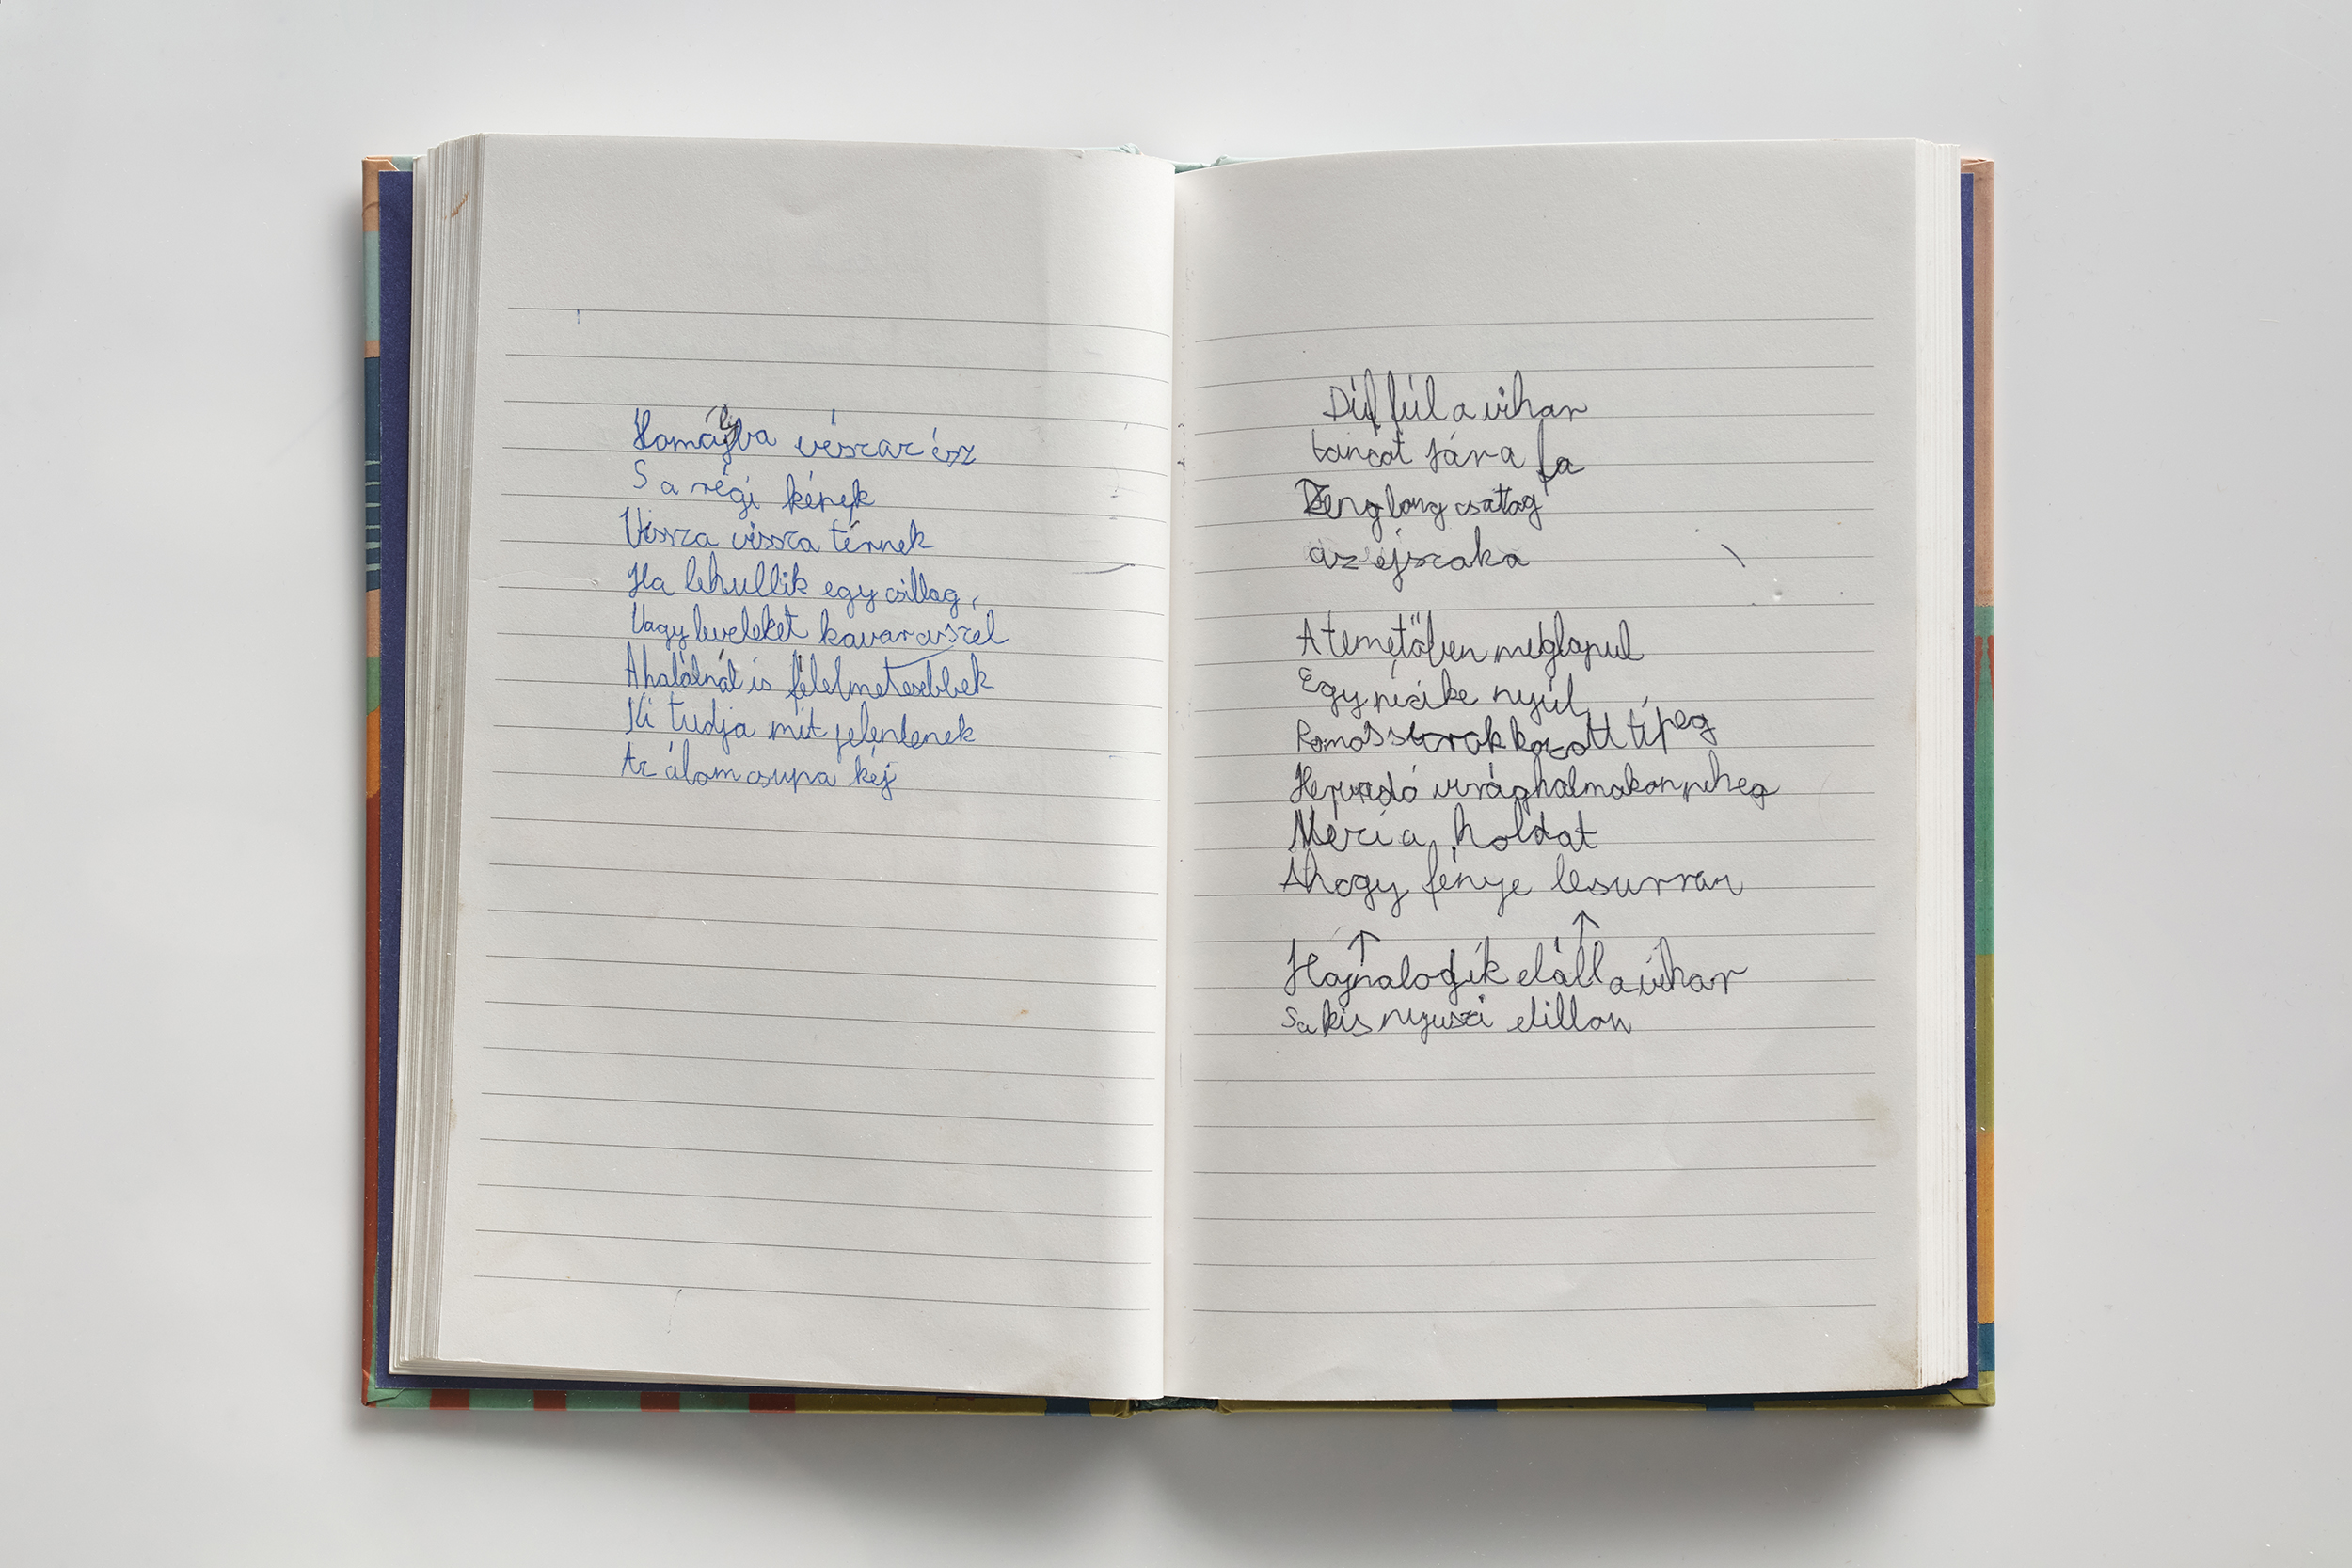 Homályba vész az ész
S a régi képek
Vissza vissza térnek
Ha lehullik egy csillag,
Vagy leveleket kavar a szél
A halálnál is félelmetesebbek
Ki tudja mit jelentenek
Az álom csupa kéj
Dúl fúl a vihar
táncát jára fa
Zeng long csattog
az éjszaka
A temetőben meglapul
Egy picike nyúl
Romos sírok között tipeg
Hervadó virághalmakon piheg
Nézi a holdat
Ahogy fénye lesurran
Hajnalodik eláll a vihar
S a kis nyuszi elillan